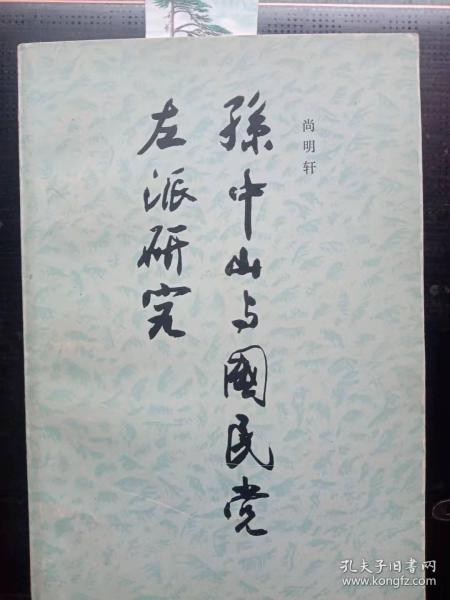 尚明轩
孫中山与國民党
左派研究
孔夫子旧书网
www.kongfz.com